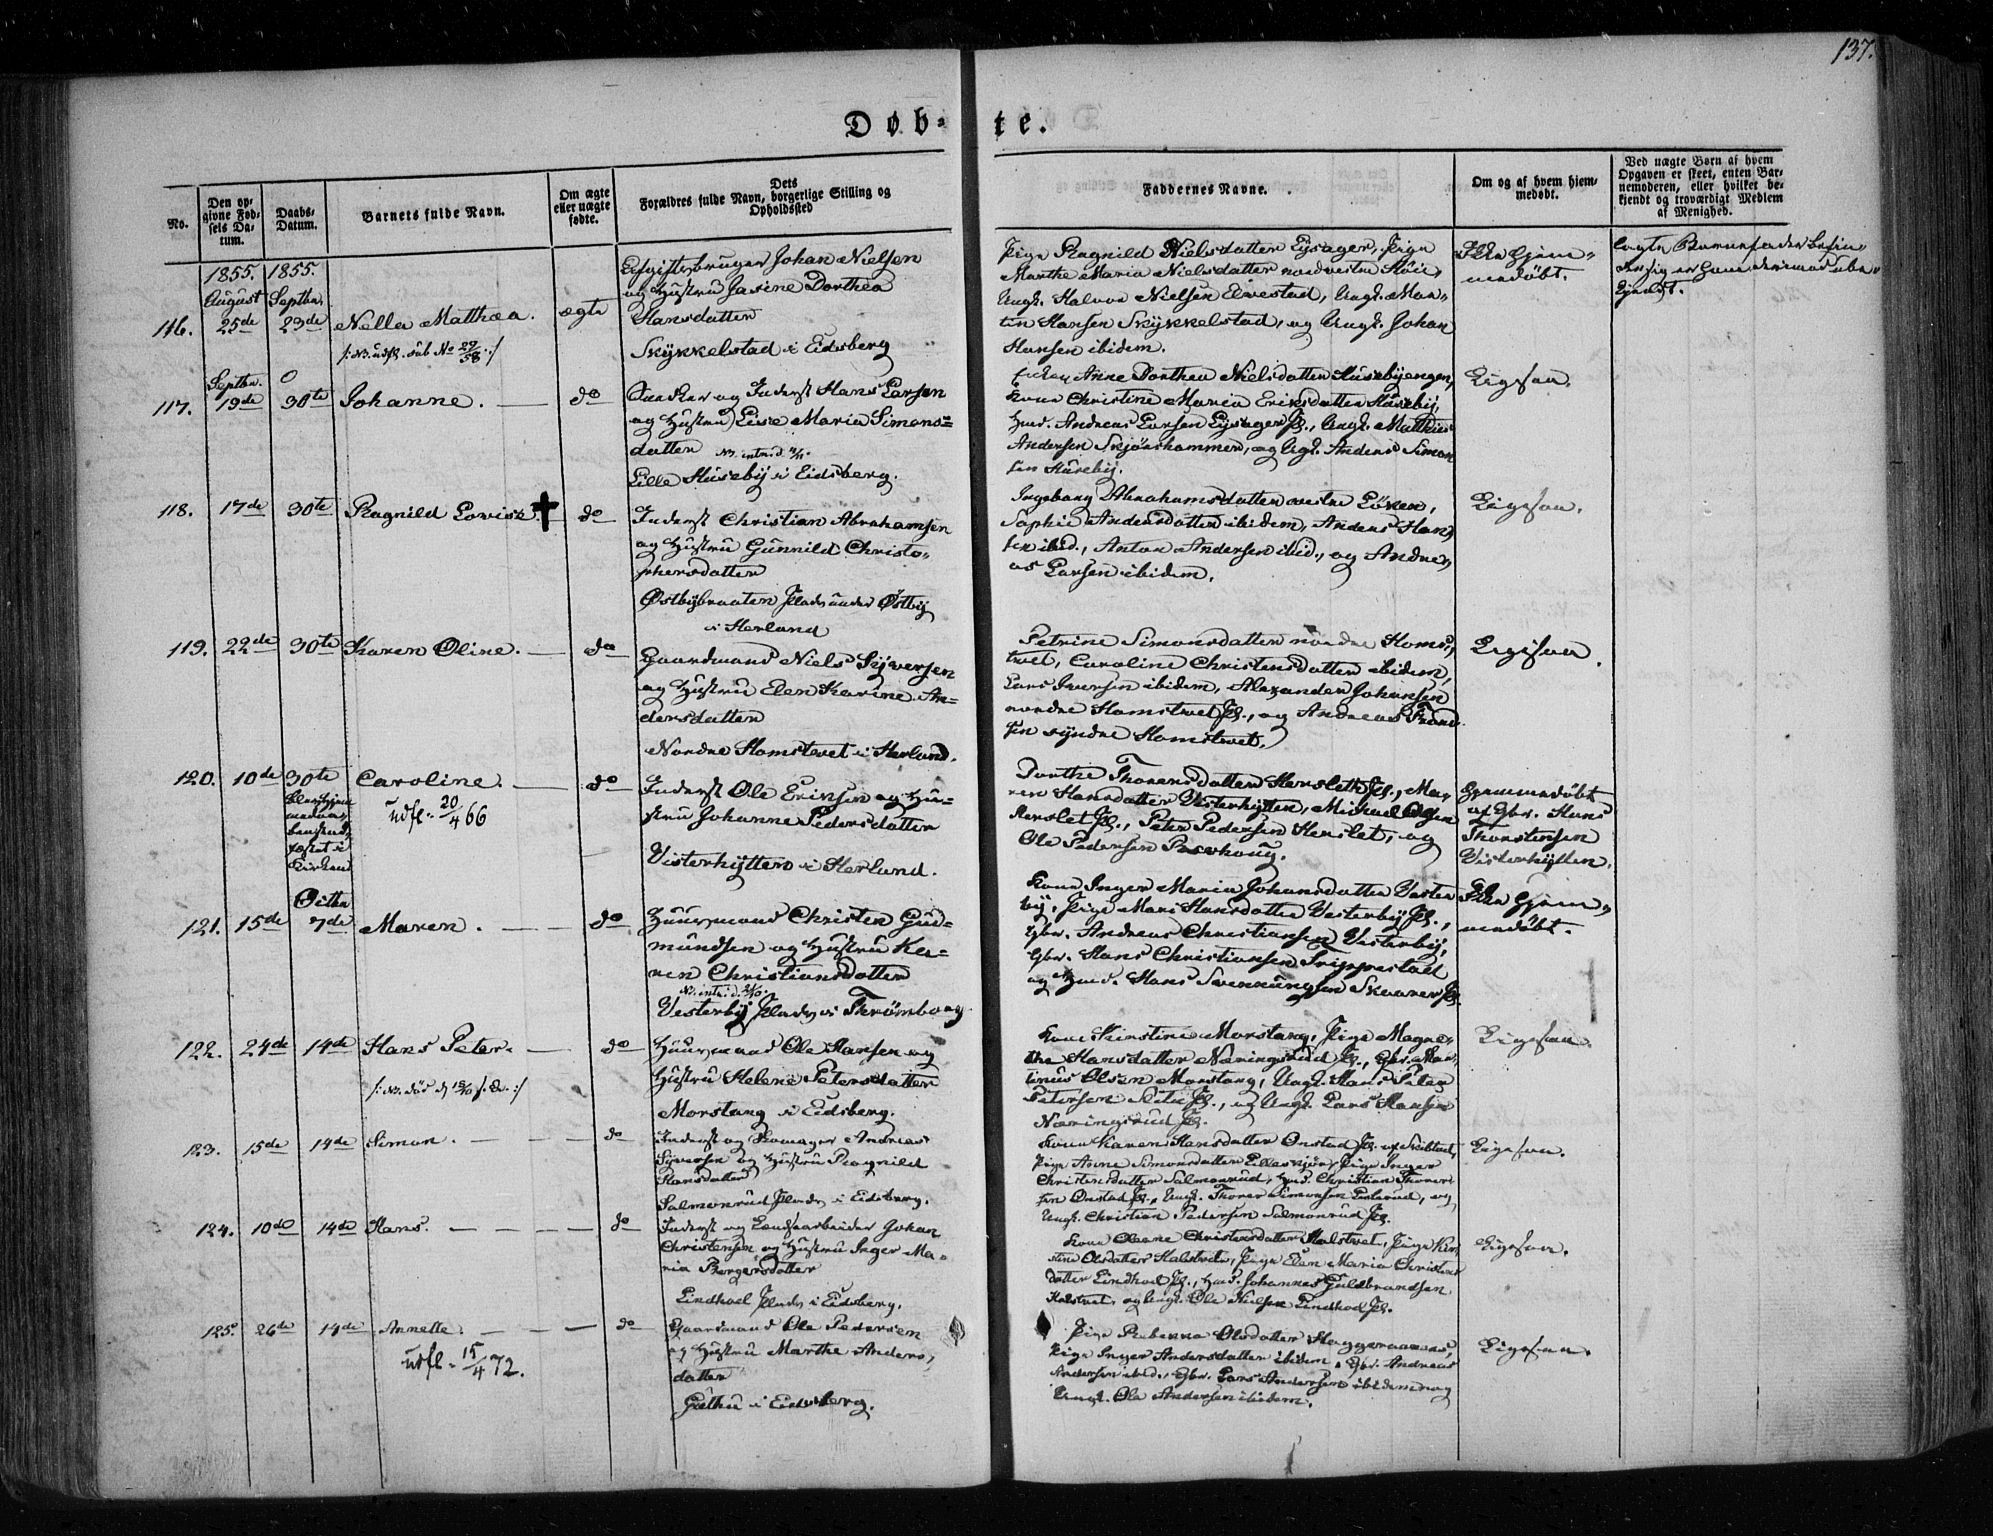 137.
Døb-
te.
No.
Den op-
givne Fød-
sels Da-
tum.
Daabs-
Datum.
Barnets fulde Navn.
Om ægte
eller uægte
fødte.
Dets
Forældres fulde Navn, borgerlige Stilling og
Opholdssted
Faddernes Navne.
Om og af hvem hjem-
medøbt.
Ved uægte Børn af hvem
Opgaven er skeet, enten Bar-
nemoderen, eller hvilket be-
kjendt og troværdigt Medlem
af Menighed.
1855. 1855.
August Septbr.
116. 25de 23de Nella Matthæa. ægte
/: NB. udfl. sub No 29/58 :/
Johan Nielsen
og Hustru Javine Dorthea
Hansdatter
Skykkelstad i Eidsberg
Pige Ragnild Nielsdatter Eysager, Pige
Marthe Maria Nielsdatter nordvestre
Ungk. Halvor Nielsen Elvestad, Ungk. Mar-
tin Hansen Skykkelstad, og Ungk. Johan
Hansen ibidem.
Ikke hjem-
medøbt.
Septbr.
117. 19de 30te Johanne. do
og Inderst Hans Larsen
og Hustru Lise Maria Simons-
datter
Lille Huseby i Eidsberg.
Anne Dorthea Nielsdatter Husebyengen,
Kone Christine Maria Eriksdatter Huseby,
Hmd. Andreas Larsen Eysager Pl., Ungk. Matthias
Andersen Skjørshammer, og Ugk. Anders Simon
sen Huseby.
Ligesaa.
118. 17de 30te Ragnild Lovise † do
Inderst Christian Abrahamsen
og Hustru Gunnild Christo-
phersdatter
Østbybraaten Plads under Østby
i Herland
Ingeborg Abrahamsdatter vestre Løken,
Sophie Andersdatter ibidem, Anders Han
sen ibid., Anton Andersen ibid., og Andre
as Larsen ibidem.
Ligesaa.
119. 22de 30te Karen Oline. do
Gaardmand Niels Syversen
og Hustru Elen Karine An-
dersdatter
Nordre Homstvet i Herland.
Petrine Simonsdatter nordre Homs
tvet, Caroline Christensdatter ibidem,
Lars Iversen ibidem, Alexander Johansen
nordre Homstvet Pl., og Andreas
sen syndre Homstvet.
Ligesaa.
120. 10de 30te Caroline. do
udfl. 20/4 66
Kirken
Inderst Ole Eriksen og Hu-
stru Johanne Pedersdatter
Visterhytten i Herland.
Dorthe Thorersdatter Herslet Pl., Ma-
ren Hansdatter Visterhytten, Michael Olsen
Herslet Pl., Peter Pedersen Herslet, og
Ole Pedersen
Hjemmedøbt
af Gbr. Hans
Thorstensen
Visterhytten.
Octbr
121. 15de 7de Maren. do
Huusmand Christen Gud-
mundsen og Hustru Ka-
ren Christiansdatter
Vesterby Plads i Thrømborg
Kone Inger Maria Johansdatter Vester
by, Pige Mari Hansdatter Vesterby Pl.,
Gbr. Andreas Christiansen Vesterby,
Gbr. Hans Christiansen Trippestad
og Hmd. Hans Svenkungsen Skaarer Pl.
Ikke hjem-
medøbt.
122. 24de 14de Hans Peter. do
Huusmand Ole Hansen og
Hustru Helene Petersdatter
Morstang i Eidsberg.
Kone Kirstine Morstang, Pige Magne-
the Hansdatter Næringsrud Pl., Gbr. Mar-
tinus Olsen Morstang, Ungk. Hans Peter
Petersen Pl., og Ungk. Lars Hansen
Næringsrud Pl.
Ligesaa.
123. 15de 14de Simon. do
Inderst og Skomager Andreas
Syversen og Hustru Ragnild
Hansdatter
Salmonrud Plads i Eidsberg.
Kone Karen Hansdatter Onstad Pl.
Pige Anne Simonsdatter Lilleskjør, Pige Inger
Christensdatter Salmonrud, Hmd. Christian Thorer
sen Onstad Pl., Ungk. Thorer Simonsen og
Ungk. Christian Pedersen Salmonrud Pl.
Ligesaa.
124. 10de 14de Hans. do
Inderst og Landsarbeider Johan
Christensen og Hustru Inger Ma-
ria Børgersdatter
Lindhoel Plads i Eidsberg.
Kone Oleane Christensdatter Holstvet, Pige Kir
stine Olsdatter Holstvet, Pige Elen Maria Christens
datter Lindhoel Pl., Hmd. Johannes Guldbrandsen
Holstvet, og Ungk. Ole Nielsen Lindhoel Pl.
Ligesaa.
125. 26de 14de Annette. do
udfl. 15/4 72.
Gaardmand Ole Pedersen
og Hustru Marthe Anders-
datter
Guthu i Eidsberg.
Pige Rebenna Olsdatter
Pige Inger Andersdatter ibidem, Gbr. Andreas
Andersen ibid., Gbr. Lars Andersen ibidem og
Ungk. Ole Andersen ibidem.
Ligesaa.